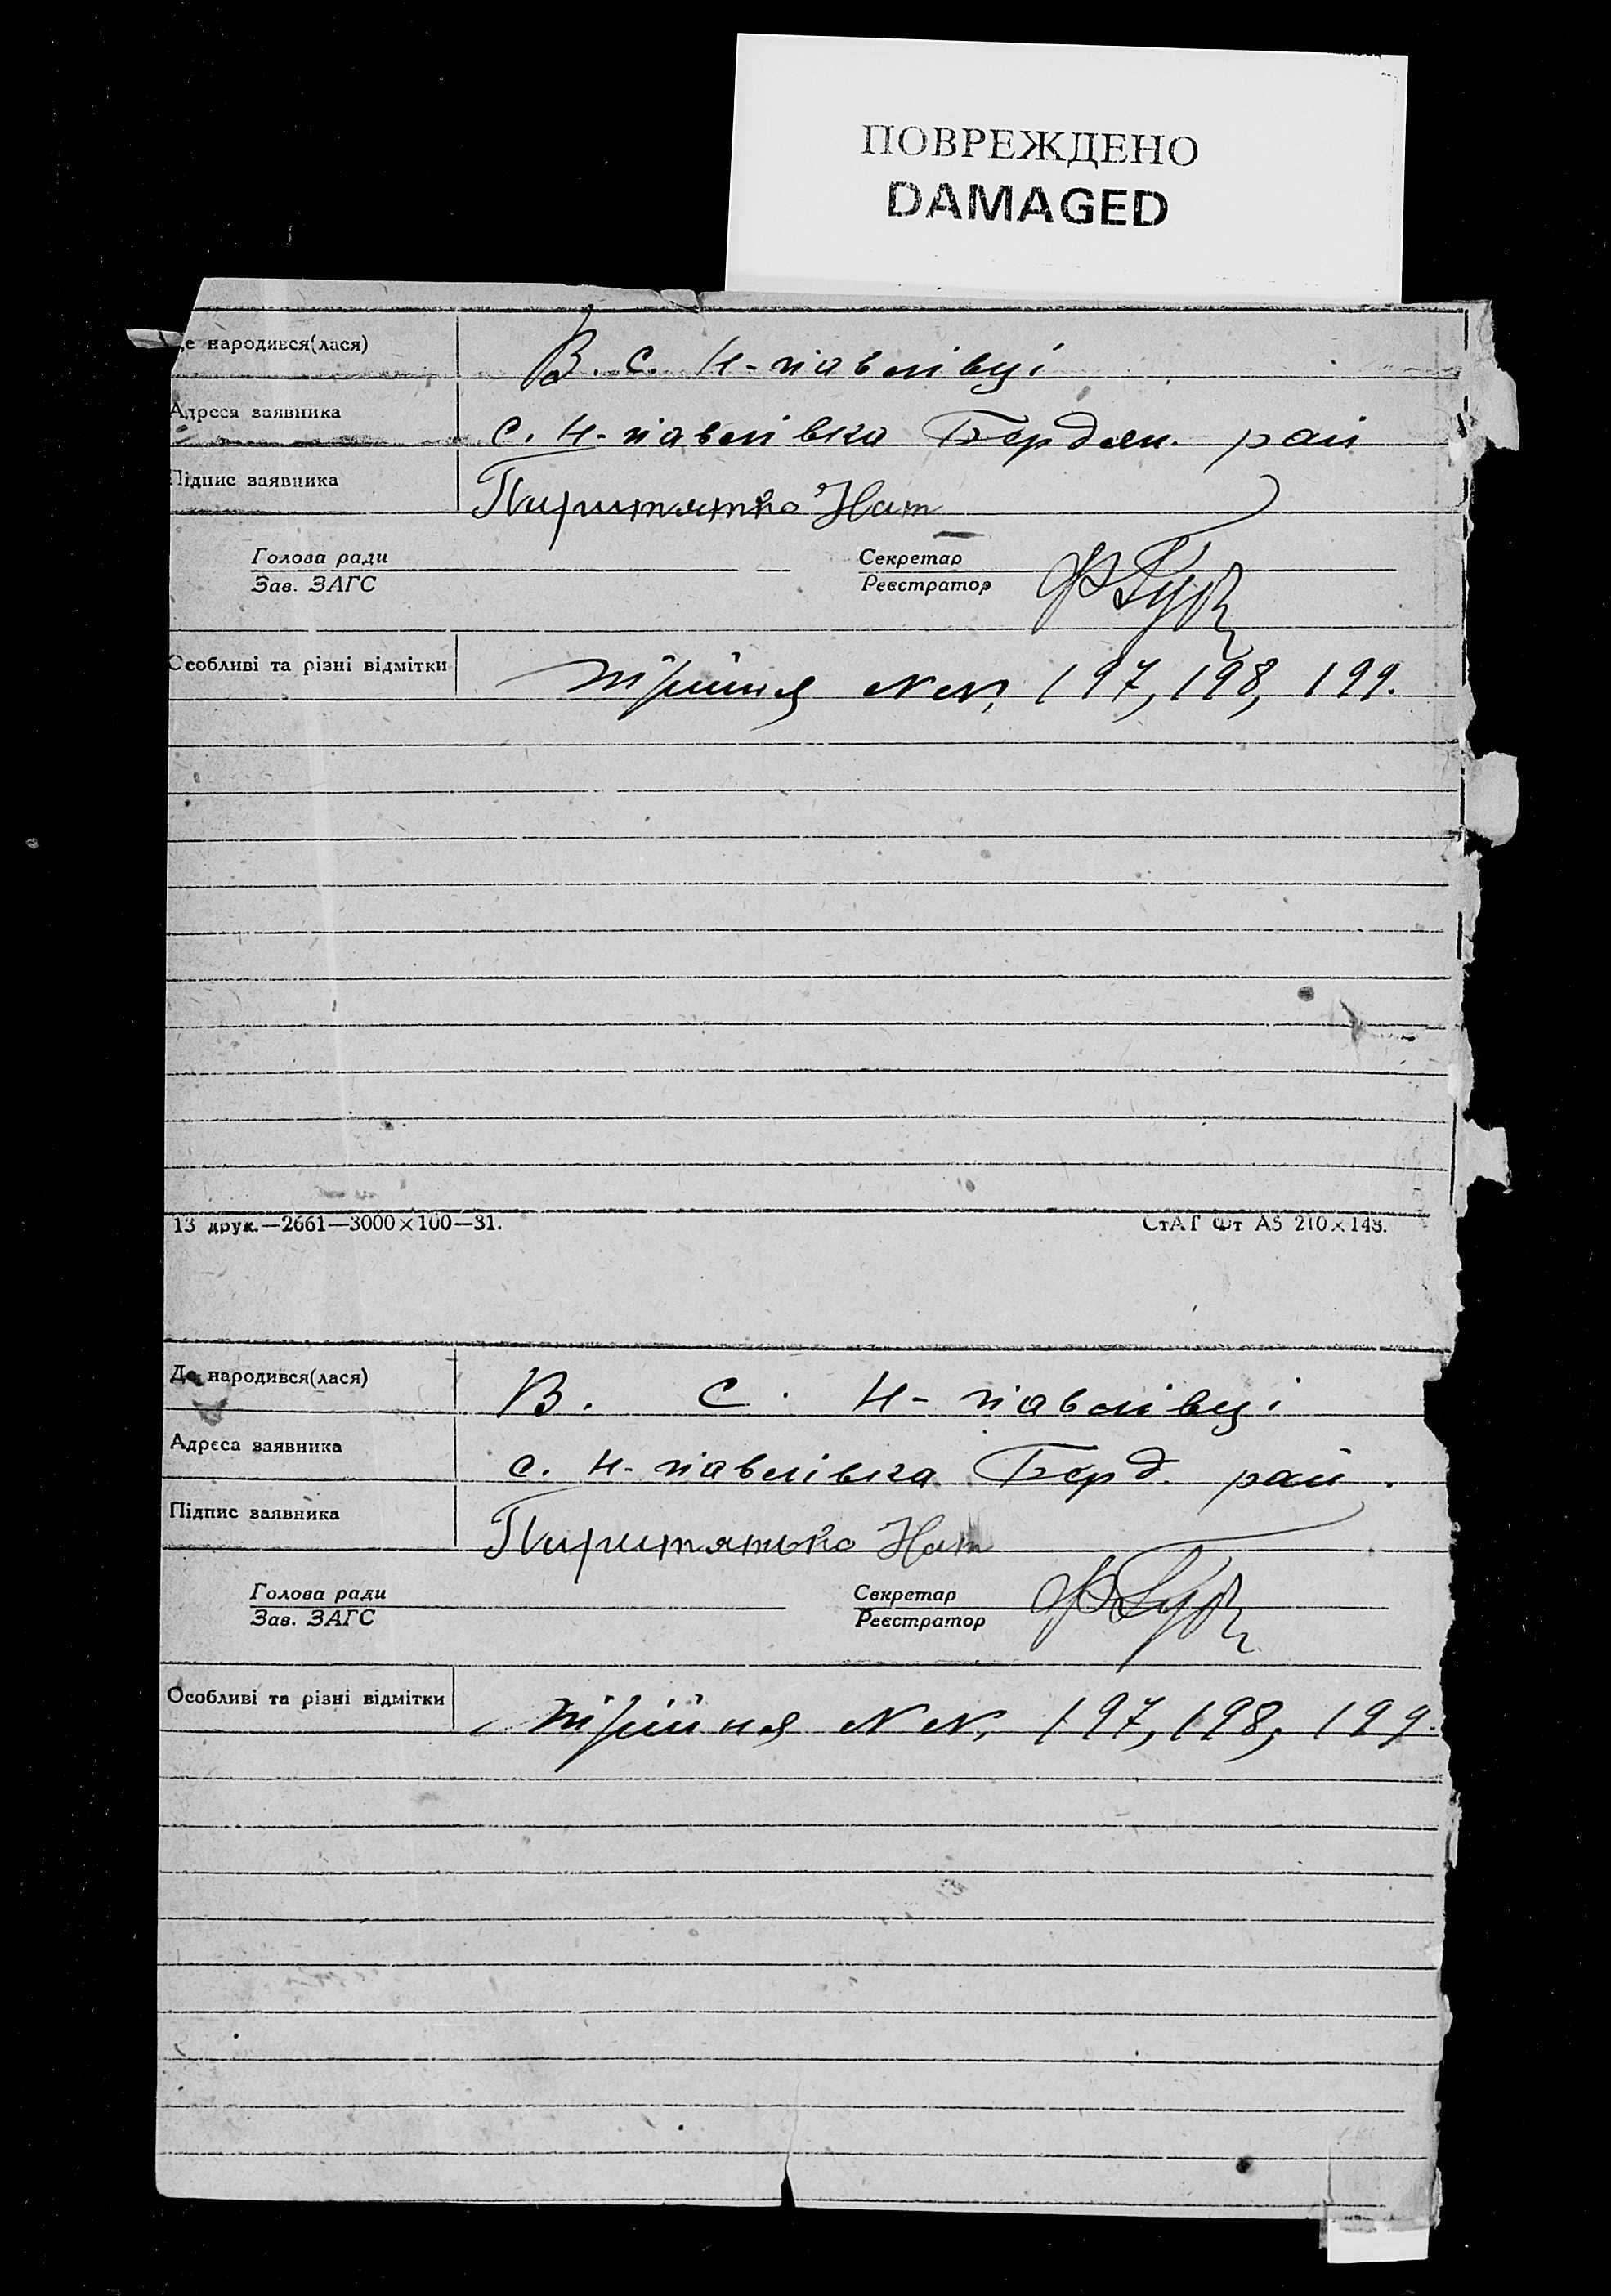 ПОВРЕЖДЕНО
DAMAGED
Де народився(лася) В. с. Н-павлівці
Адреса заявника с. Н-павлівка Бердян. рай
Підпис заявника Пиритятко Нат
Голова ради Секретар
Зав. ЗАГС Реєстратор
Особливі та різні відмітки трійня №№, 197, 198, 199.
13 друк.—2661—3000×100—31. СтАГ Фт А5 210×148.
Де народився(лася) В. с. Н-павлівці
Адреса заявника с. Н-павлівка Берд. рай.
Підпис заявника Пиритятько Нат
Голова ради Секретар
Зав. ЗАГС Реєстратор
Особливі та різні відмітки трійня №№, 197, 198, 199.